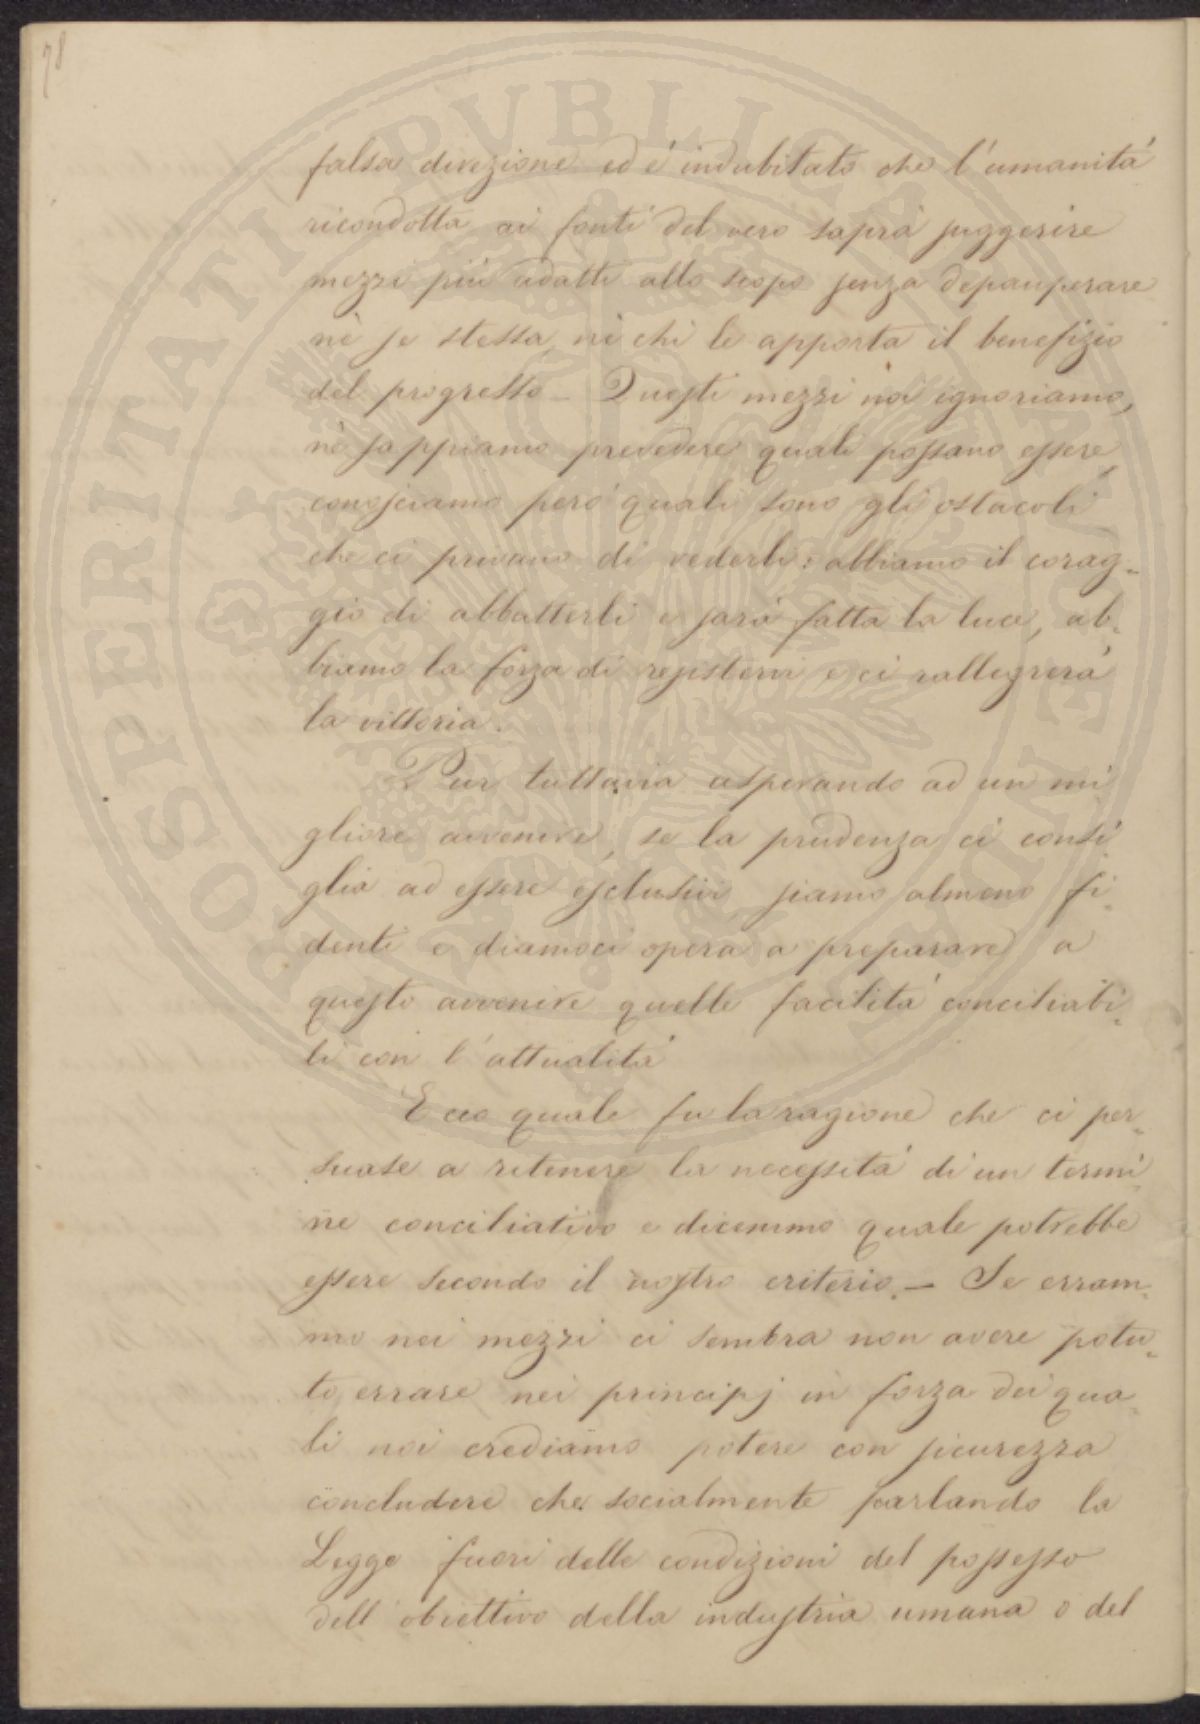 78
falsa direzione ed é indubitato che l'umanitá
ricondotta ai fonti del vero saprá suggerire
mezzi piú adatti allo scopo senza depauperare
nè se stessa, nè chi le apporta il benefizio
del progresso – Questi mezzi noi ignoriamo,
nè sappiamo prevedere quali possano essere,
conosciamo peró quali sono gli ostacoli
che ci privano di vederli: abbiamo il corag-
gio di abbatterli e sará fatta la luce, ab-
biamo la forza di resistervi e ci rallegrerá
la vittoria.
Pur tuttavia asperando ad un mi
gliore avvenire, se la prudenza ci consi
glia ad essere esclusivi, siamo almeno fi-
denti e diamoci opera a preparare a
questo avvenire quelle facilitá conciliabi-
li con l'attualitá
Ecco quale fu la ragione che ci per-
suase a ritenere la necessitá di un termi-
ne conciliativo e dicemmo quale potrebbe
essere secondo il nostro criterio. – Se erram-
mo nei mezzi ci sembra non avere potu-
to errare nei principj in forza dei qua-
li noi crediamo potere con sicurezza
concludere che socialmente parlando la
Legge fuori delle condizioni del possesso
dell'obiettivo della industria umana o del
PROSPERITATI PVBLICAE